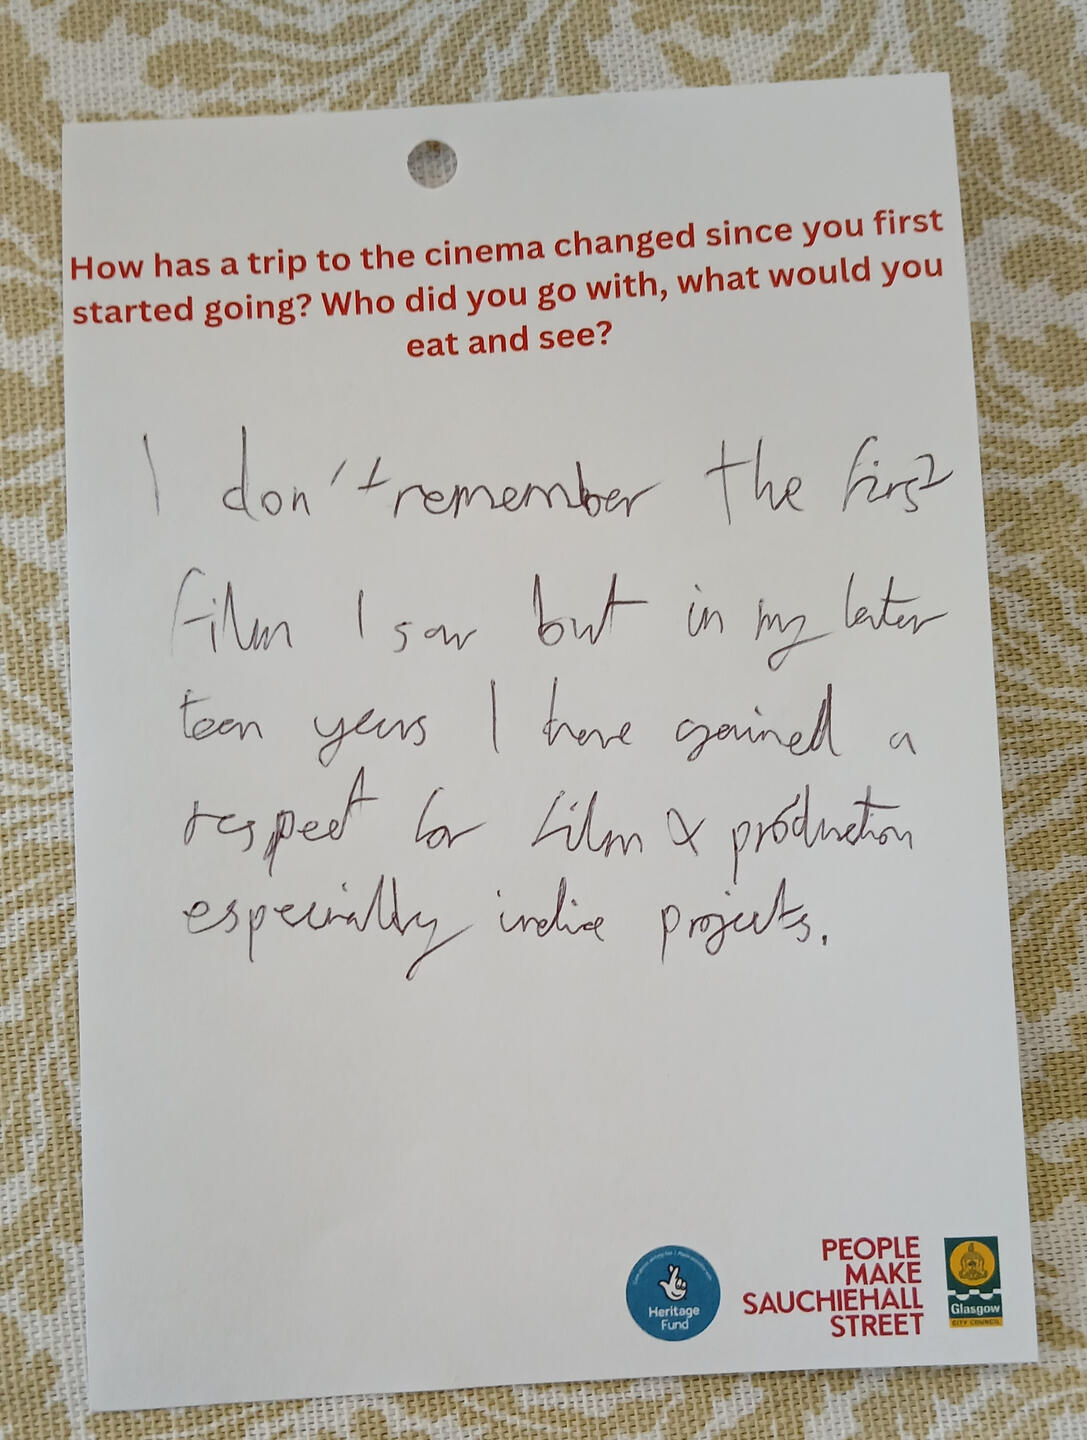 How has a trip to the cinema changed since you first
started going? Who did you go with, what would you
eat and see?
I don't remember the first
film I saw but in my later
teen years I have gained a
respect for film & production
especially indie projects.
Heritage
Fund
PEOPLE
MAKE
SAUCHIEHALL
STREET
Glasgow
CITY COUNCIL